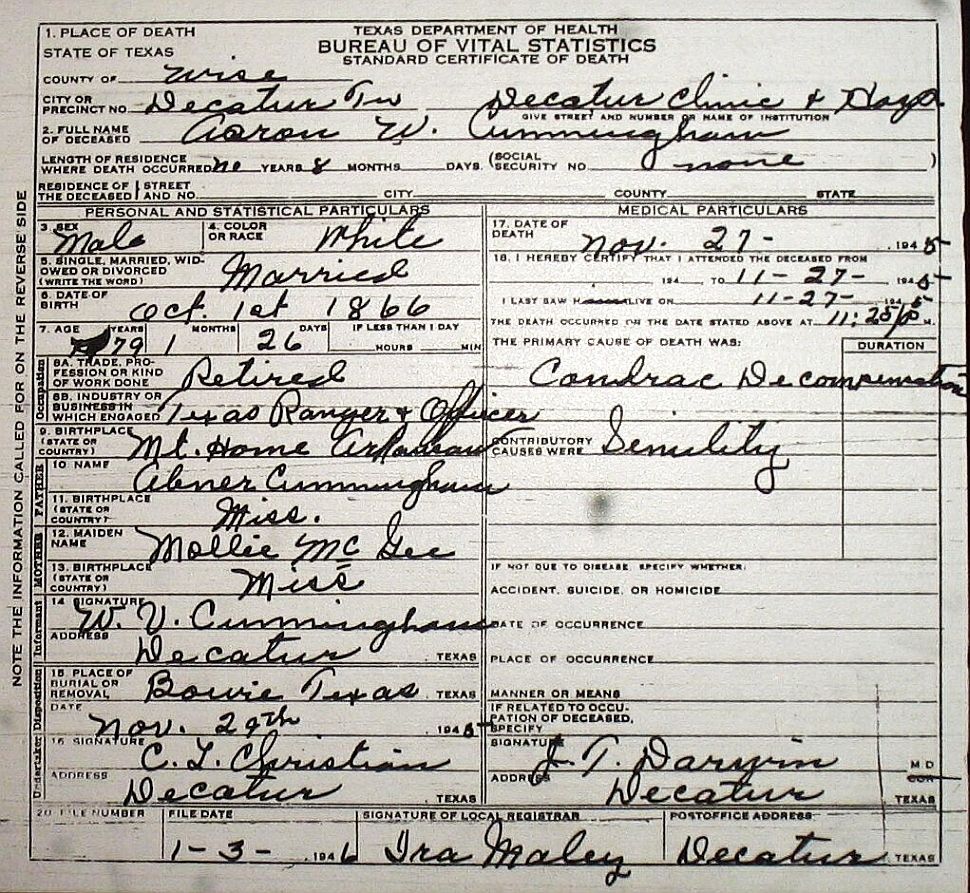 TEXAS DEPARTMENT OF HEALTH
BUREAU OF VITAL STATISTICS
STANDARD CERTIFICATE OF DEATH
1. PLACE OF DEATH
STATE OF TEXAS
COUNTY OF Wise
CITY OR PRECINCT NO. Decatur Decatur Clinic &
GIVE STREET AND NUMBER OR NAME OF INSTITUTION
2. FULL NAME OF DECEASED Aaron W. Cunningham
LENGTH OF RESIDENCE WHERE DEATH OCCURRED no YEARS 8 MONTHS DAYS. (SOCIAL SECURITY NO. none )
RESIDENCE OF THE DECEASED STREET AND NO. CITY COUNTY STATE
PERSONAL AND STATISTICAL PARTICULARS
3. SEX Male
4. COLOR OR RACE White
5. SINGLE, MARRIED, WIDOWED OR DIVORCED (WRITE THE WORD) Married
6. DATE OF BIRTH Oct. 1st 1866
7. AGE YEARS MONTHS DAYS IF LESS THAN 1 DAY
79 1 26 HOURS MIN
Occupation
8A. TRADE, PROFESSION OR KIND OF WORK DONE Retired
8B. INDUSTRY OR BUSINESS IN WHICH ENGAGED Texas Ranger & Officer
9. BIRTHPLACE (STATE OR COUNTRY) Mt. Home Arkansas
FATHER
10 NAME Abner Cunningham
11. BIRTHPLACE (STATE OR COUNTRY) Miss.
MOTHER
12. MAIDEN NAME Mollie McGee
13. BIRTHPLACE (STATE OR COUNTRY) Miss
Informant
14 SIGNATURE W. V. Cunningham
ADDRESS Decatur, TEXAS
Disposition
15. PLACE OF BURIAL OR REMOVAL Bowie Texas, TEXAS
DATE Nov. 29th 1945
Undertaker
16. SIGNATURE C. T. Christian
ADDRESS Decatur, TEXAS
MEDICAL PARTICULARS
17. DATE OF DEATH Nov. 27- , 1945
18. I HEREBY CERTIFY THAT I ATTENDED THE DECEASED FROM
194 TO 11-27- 1945
I LAST SAW H ALIVE ON 11-27- 1945
THE DEATH OCCURRED ON THE DATE STATED ABOVE AT 11:25 P M.
THE PRIMARY CAUSE OF DEATH WAS: DURATION
Decompensation
CONTRIBUTORY CAUSES WERE Senility
IF NOT DUE TO DISEASE, SPECIFY WHETHER:
ACCIDENT, SUICIDE, OR HOMICIDE
DATE OF OCCURRENCE
PLACE OF OCCURRENCE
MANNER OR MEANS
IF RELATED TO OCCUPATION OF DECEASED, SPECIFY
SIGNATURE J. T. Darwin M D
COR
ADDRESS Decatur TEXAS
20. FILE NUMBER
FILE DATE 1-3- 1946
SIGNATURE OF LOCAL REGISTRAR Ira Maley
POSTOFFICE ADDRESS Decatur, TEXAS
NOTE THE INFORMATION CALLED FOR ON THE REVERSE SIDE